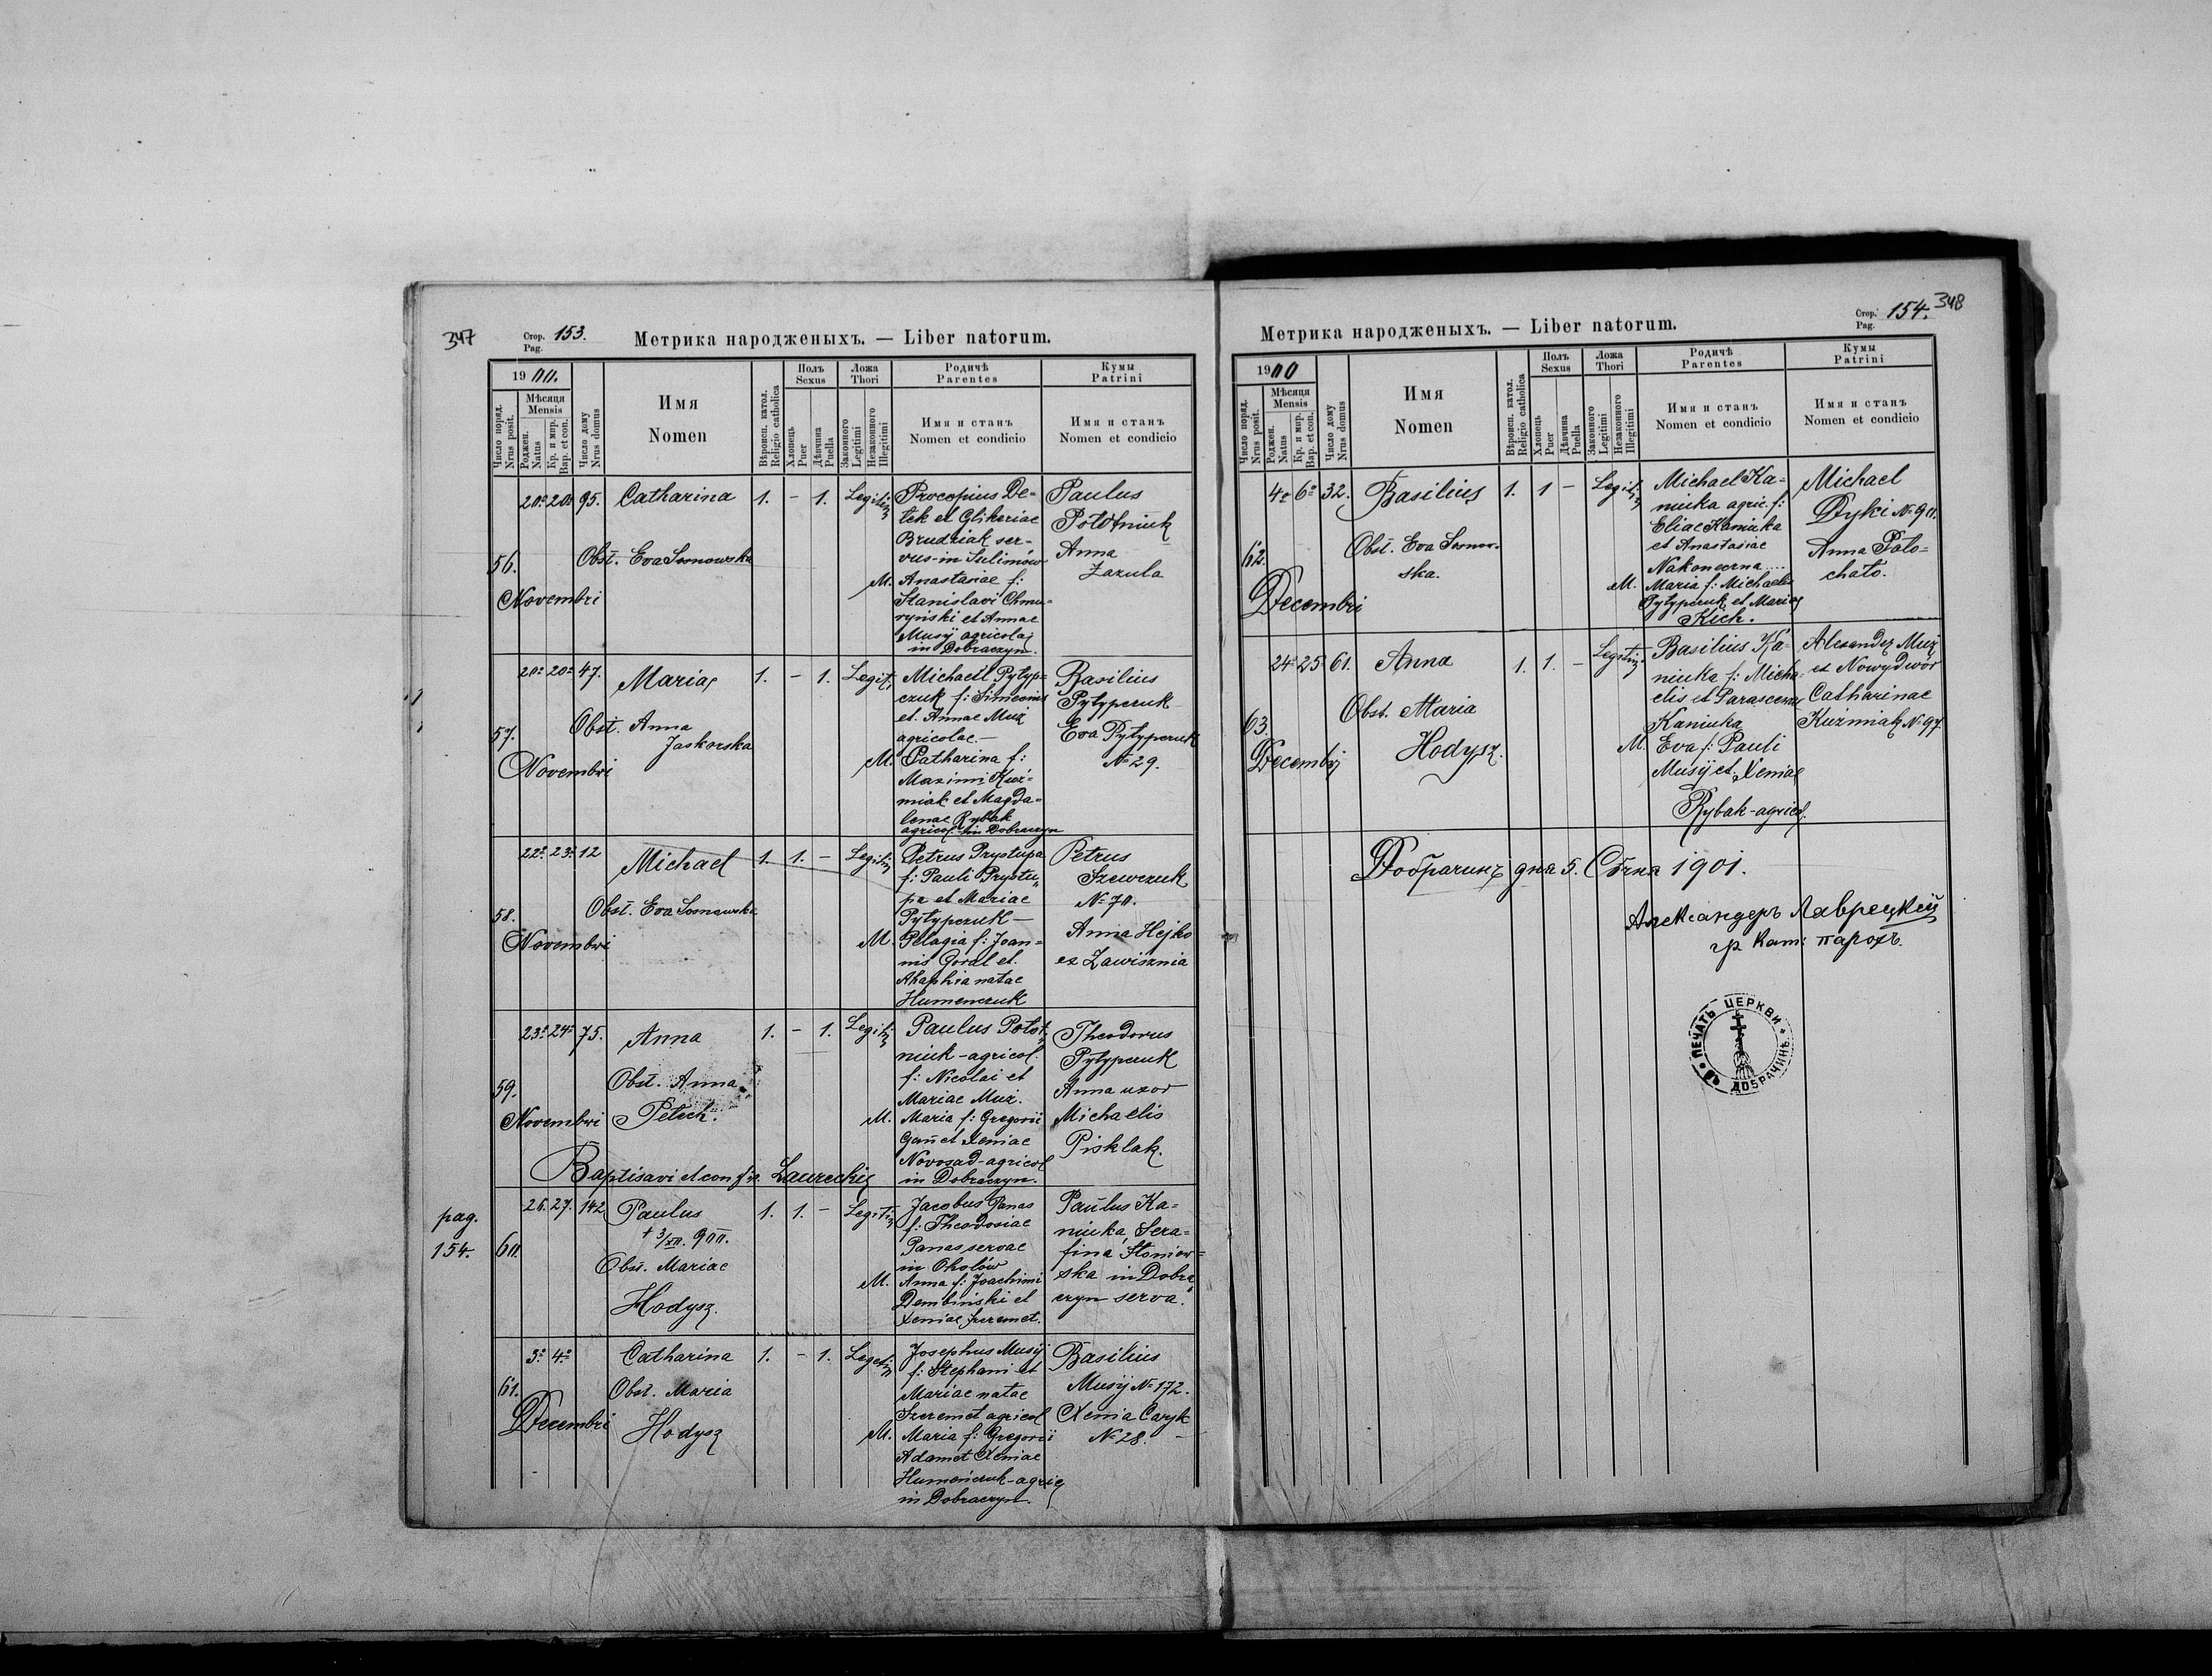 347
Стор. 153.
Pag.
Метрика народженыхъ. — Liber natorum.
1900.
Число поряд.
Nrus posit.
Мѣсяця
Mensis
Роджен.
Natus
Кр. и мир.
Bap. et con.
Число дому
Nrus domus
Имя
Nomen
Вѣроисп. катол.
Religio catholica
Полъ
Sexus
Хлопець
Puer
Дѣвчина
Puella
Ложа
Thori
Законного
Legitimi
Незаконного
Illegitimi
Родичѣ
Parentes
Имя и станъ
Nomen et condicio
Кумы
Patrini
Имя и станъ
Nomen et condicio
56.
Novembri
20. 20. 95. Catharina 1. - 1. Legitim
Obst. Eva Sosnowska
Procopius De-
tek et Glikeriae
Brudziak ser-
vus in Sulimów
M. Anastasiae f:
Stanislavi Chmu-
ryński et Annae
Musij agricolae
in Dobraczyn.
Paulus
Połotniuk
Anna
Zazula
57.
Novembri
20. 20. 47. Maria 1. - 1. Legit.
Obst. Anna
Jaskorska
Michael Pytyp-
czuk f: Simeonis
et Annae Muż
agricolae.—
M. Catharina f:
Maximi Kuź-
miak et Magda-
lenae Rybak
agricol. in Dobraczyn
Basilius
Pytypczuk
Eva Pytypczuk
№ 29.
58.
Novembri
22. 23. 12 Michael 1. 1. - Legitim
Obst. Eva Sosnowska
Petrus Prystupa
f: Pauli Prystu-
pa et Mariae
Pytypczuk —
M. Pelagia f: Joan-
nis Góral et
Ahaphia natae
Humenczuk
Petrus
Szewczuk
№ 70.
Anna Hejko
ex Zawisznia
59.
Novembri
23. 24. 75. Anna 1. - 1. Legitim
Obst. Anna
Petech.
Paulus Połot-
niuk - agricol.
f: Nicolai et
Mariae Muż.
M. Maria f: Gregorii
Gań et Xeniae
Novosad - agricol
in Dobraczyn.
Theodorus
Pytypczuk
Anna uxor
Michaelis
Pisklak.
Baptisavi et confir. Laurecki
pag.
154.
60.
26. 27. 142 Paulus 1. 1. - Legitim
† 3/XII. 900.
Obst. Mariae
Hodysz.
Jacobus Panas
f: Theodosiae
Panas servae
in Opolów
M. Anna f: Joachimi
Dembiński et
Xeniae Szeremet.
Paulus Ka-
niuka, Sera-
fina Słoniow-
ska in Dobra-
czyn serva.
61.
Decembri
3. 4. Catharina 1. - 1. Legitim
Obst. Maria
Hodysz
Josephus Musij
f: Stephani et
Mariae natae
Szeremet agricol
M. Maria f: Gregorii
Adam et Xeniae
Humeńczuk - agric
in Dobraczyn.
Basilius
Musij № 172.
Xenia Caryk
№ 28.
348
Стор. 154.
Pag.
Метрика народженыхъ. — Liber natorum.
1900
Число поряд.
Nrus posit.
Мѣсяця
Mensis
Роджен.
Natus
Кр. и мир.
Bap. et con.
Число дому
Nrus domus
Имя
Nomen
Вѣроисп. катол.
Religio catholica
Полъ
Sexus
Хлопець
Puer
Дѣвчина
Puella
Ложа
Thori
Законного
Legitimi
Незаконного
Illegitimi
Родичѣ
Parentes
Имя и станъ
Nomen et condicio
Кумы
Patrini
Имя и станъ
Nomen et condicio
62.
Decembri
4. 6. 32. Basilius 1. 1 - Legitim
Obst. Eva Sosnow-
ska.
Michael Ka-
niuka agric. f:
Eliae Kaniuka
et Anastasiae
Nakoneczna
M. Maria f: Michaelis
Pytypczuk et Mariae
Kich.
Michael
Dyki № 90.
Anna Poło-
chało.
63.
Decembri
24. 25. 61. Anna 1. 1. - Legitim
Obst. Maria
Hodysz.
Basilius Ka-
niuka f: Micha-
elis et Parascevae
Kaniuka
M. Eva f: Pauli
Musij et Xeniae
Rybak - agricol.
Alexander Muż
ex Nowydwór
Catharinae
Kuzmiak № 97.
Добрачинъ дна 5. Сѣчня 1901.
Александеръ Лаврецкій
гр. кат. парохъ.
ПЕЧАТЬ ЦЕРКВИ ДОБРАЧИНЪ